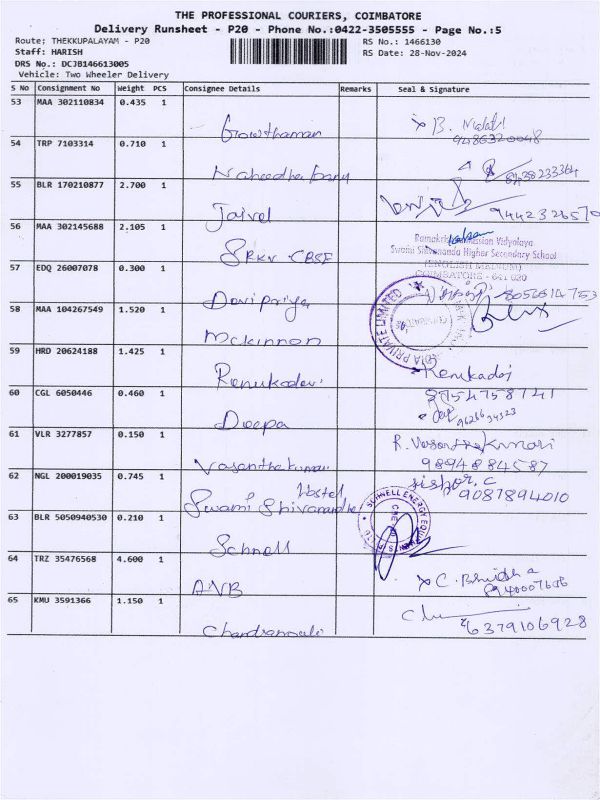 THE PROFESSIONAL COURIERS, COIMBATORE
Delivery Runsheet - P20 - Phone No.:0422-3505555 - Page No.:5
Route; THEKKUPALAYAM - P20
RS No.: 1466130
Staff: HARISH
RS Date: 28-Nov-2024
DRS No.: DCJB146613005
Vehicle: Two Wheeler Delivery
S No Consignment No Weight PCS Consignee Details Remarks Seal & Signature
53 MAA 302110834 0.435 1
Gowthaman x B. Malathi
54 TRP 7103314 0.710 1
Naheedha banu
55 BLR 170210877 2.700 1
Jaivel 9442326570
56 MAA 302145688 2.105 1
SRKV CBSE
Swami Shivananda Higher Secondary School
(ENGLISH MEDIUM)
COIMBATORE - 641 020
57 EDQ 26007078 0.300 1
Devi priya 8056614753
58 MAA 104267549 1.520 1
Mckinnon
PRIVATE LIMITED
59 HRD 20624188 1.425 1
Renukadevi
60 CGL 6050446 0.460 1
Deepa
61 VLR 3277857 0.150 1
Vasanthakumari R. Vasanthakumari
9894884587
62 NGL 200019035 0.745 1
Swami Shivanandha Hostel
9087894010
63 BLR 5050940530 0.210 1
Schnell
SCHNELL ENERGY
64 TRZ 35476568 4.600 1
ANB
65 KMU 3591366 1.150 1
Chandramouli 6379106928